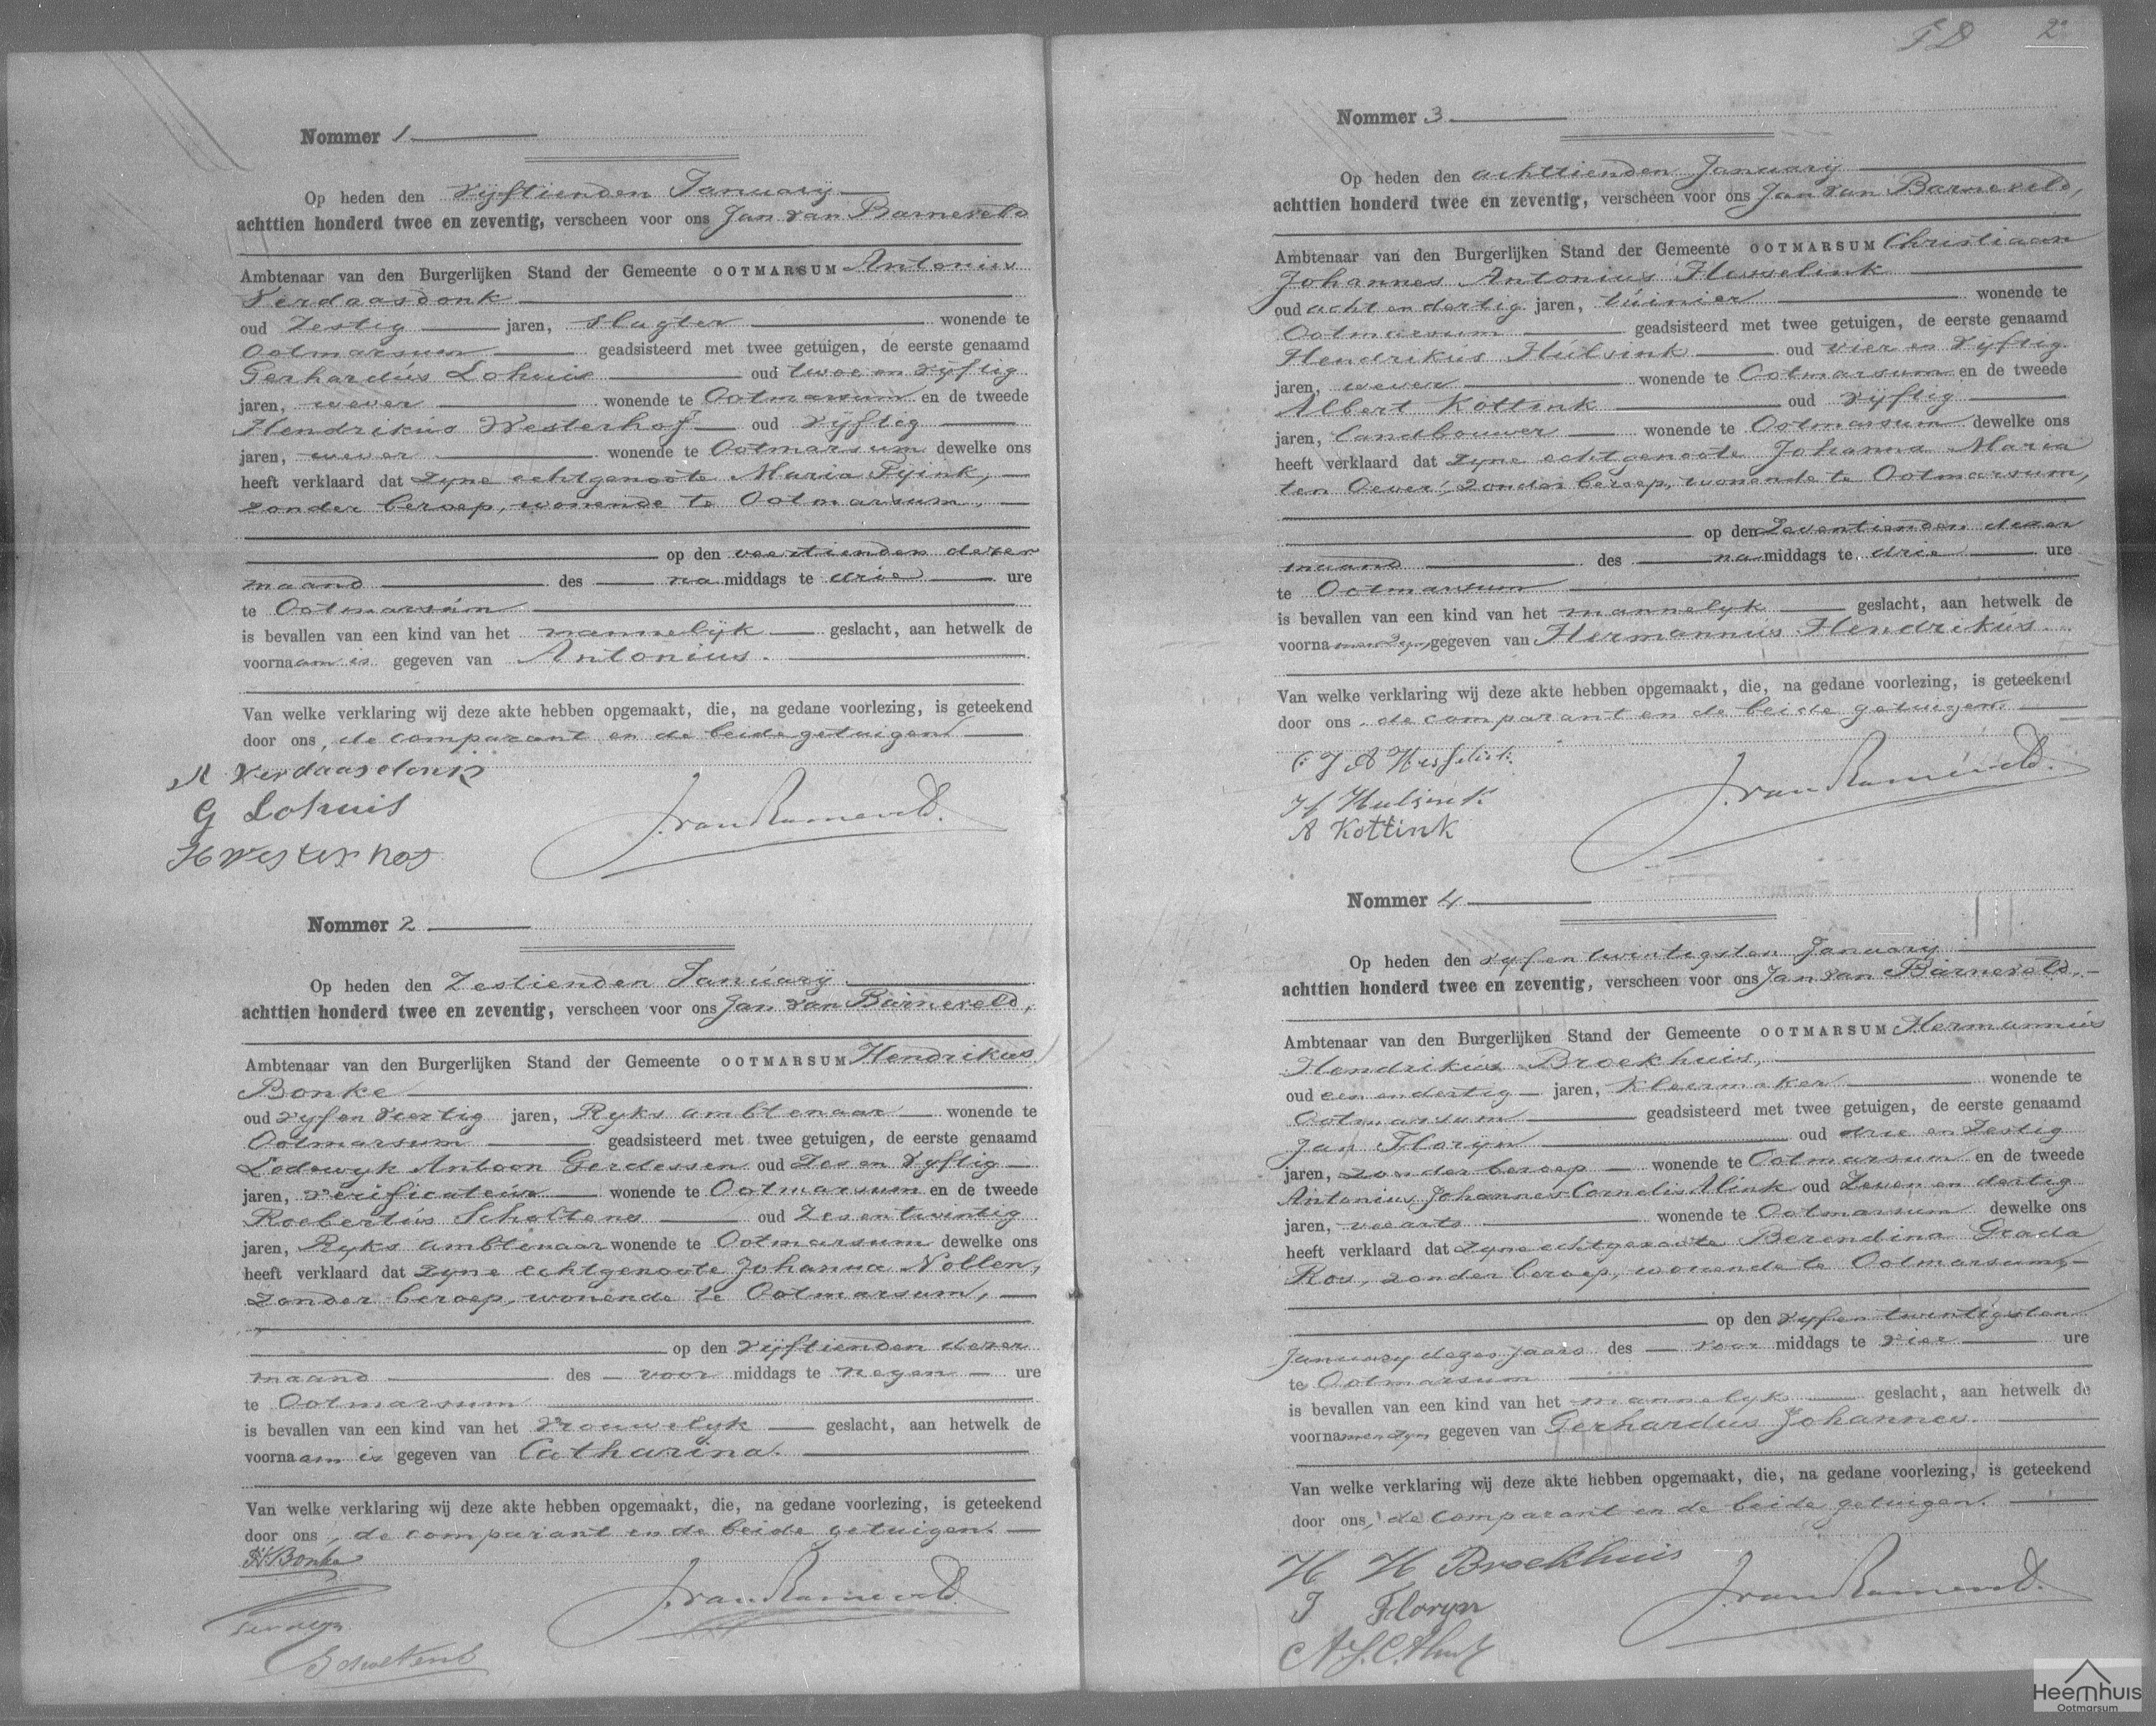 Nommer 1
Op heden den vijftienden Januarij
achttien honderd twee en zeventig, verscheen voor ons Jan van Barneveld
Ambtenaar van den Burgerlijken Stand der Gemeente OOTMARSUM Antonius
Verdaasdonk
oud Zestig jaren, Slagter wonende te
Ootmarsum geadsisteerd met twee getuigen, de eerste genaamd
Gerhardus Lohuis oud twee en vyftig
jaren, wever wonende te Ootmarsum en de tweede
Hendrikus Westerhof oud vijftig
jaren, wever wonende te Ootmarsum dewelke ons
heeft verklaard dat zyne echtgenoote Maria
zonder beroep, wonende te Ootmarsum,
op den veertienden dezer
maand des na middags te drie ure
te Ootmarsum
is bevallen van een kind van het mannelijk geslacht, aan hetwelk de
voornaam is gegeven van Antonius.
Van welke verklaring wij deze akte hebben opgemaakt, die, na gedane voorlezing, is geteekend
door ons, de comparant en de beide getuigen
A Verdaasdonk
G Lohuis
H Westerhof
J. van Barneveld.
Nommer 2
Op heden den Zestienden Januarij
achttien honderd twee en zeventig, verscheen voor ons Jan van Barneveld,
Ambtenaar van den Burgerlijken Stand der Gemeente OOTMARSUM Hendrikus
Bonke
oud vyf en veertig jaren, Ryks ambtenaar wonende te
Ootmarsum geadsisteerd met twee getuigen, de eerste genaamd
Lodewyk Antoon Gerdessen oud Zes en vyftig
jaren, verificateur wonende te Ootmarsum en de tweede
Roebertus Scholtens oud Zes en twintig
jaren, Ryks ambtenaar wonende te Ootmarsum dewelke ons
heeft verklaard dat zyne echtgenoote Johanna Nollen,
zonder beroep, wonende te Ootmarsum,
op den vijftienden dezer
maand des voor middags te negen ure
te Ootmarsum
is bevallen van een kind van het vrouwelyk geslacht, aan hetwelk de
voornaam is gegeven van Catharina.
Van welke verklaring wij deze akte hebben opgemaakt, die, na gedane voorlezing, is geteekend
door ons, de comparant en de beide getuigen.
H Bonke
J. van Barneveld.
Scholtens
2
Nommer 3
Op heden den achttienden Januarij
achttien honderd twee en zeventig, verscheen voor ons Jan van Barneveld,
Ambtenaar van den Burgerlijken Stand der Gemeente OOTMARSUM Christiaan
Johannes Antonius Hesselink
oud acht en dertig jaren, tuinier wonende te
Ootmarsum geadsisteerd met twee getuigen, de eerste genaamd
Hendrikus Hulsink oud vier en vyftig
jaren, wever wonende te Ootmarsum en de tweede
Albert Kottink oud vyftig
jaren, landbouwer wonende te Ootmarsum dewelke ons
heeft verklaard dat zyne echtgenoote Johanna Maria
ten Oever, zonder beroep, wonende te Ootmarsum,
op den Zeventienden dezer
maand des na middags te drie ure
te Ootmarsum
is bevallen van een kind van het mannelyk geslacht, aan hetwelk de
voornamen zyn gegeven van Hermannus Hendrikus.
Van welke verklaring wij deze akte hebben opgemaakt, die, na gedane voorlezing, is geteekend
door ons de comparant en de beide getuigen.
C J A Hesselink
H Hulsink
A Kottink
J. van Barneveld.
Nommer 4
Op heden den vyf en twintigsten Januarij
achttien honderd twee en zeventig, verscheen voor ons Jan van Barneveld,
Ambtenaar van den Burgerlijken Stand der Gemeente OOTMARSUM Hermannus
Hendrikus Broekhuis,
oud een en dertig jaren, Kleermaker wonende te
Ootmarsum geadsisteerd met twee getuigen, de eerste genaamd
Jan Floryn oud drie en Zestig
jaren, zonder beroep wonende te Ootmarsum en de tweede
Antonius Johannes Cornelis Alink oud Zeven en dertig
jaren, veearts wonende te Ootmarsum dewelke ons
heeft verklaard dat zyne echtgenoote Berendina Grada
Ros, zonder beroep, wonende te Ootmarsum,
op den vyf en twintigsten
January dezes jaars des voor middags te vier ure
te Ootmarsum
is bevallen van een kind van het mannelyk geslacht, aan hetwelk de
voornamen zyn gegeven van Gerhardus Johannes.
Van welke verklaring wij deze akte hebben opgemaakt, die, na gedane voorlezing, is geteekend
door ons, de comparant en de beide getuigen.
H H Broekhuis
J Floryn
A. J. C. Alink
J. van Barneveld.
Heemhuis
Ootmarsum